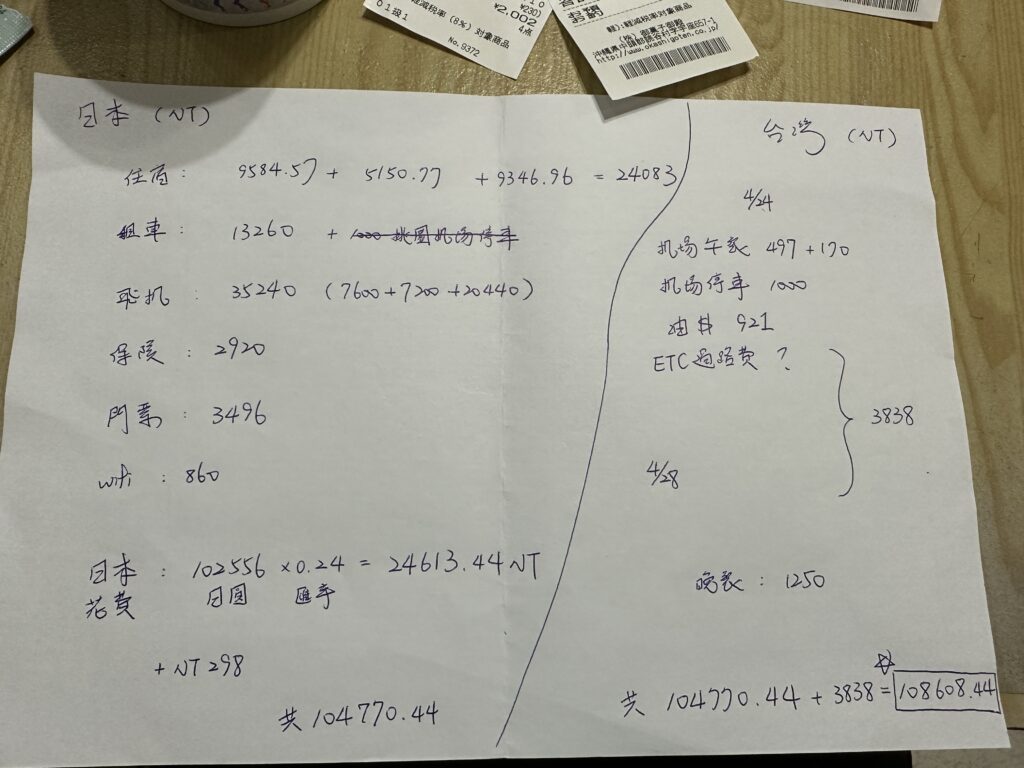 ¥2,002
軽減税率 (8%) 対象商品
01級1
No.9372
軽):軽減税率対象商品
(株) 御菓子御殿
沖縄県中頭郡読谷村字宇座657-1
http://www.okashigoten.co.jp/
日本 (NT)
住宿: 9584.57 + 5150.77 + 9346.96 = 24083
租車: 13260 + 1000 桃園机场停車
飛机: 35240 (7600+7200+20440)
保險: 2920
門票: 3496
wifi: 860
日本花費: 102556 × 0.24 = 24613.44 NT
日圓 匯率
+ NT 298
共 104770.44
台灣 (NT)
4/24
机场午餐 497 + 170
机场停車 1000
油錢 921
ETC 過路費 ?
3838
4/28
晚餐: 1250
共 104770.44 + 3838 = 108608.44